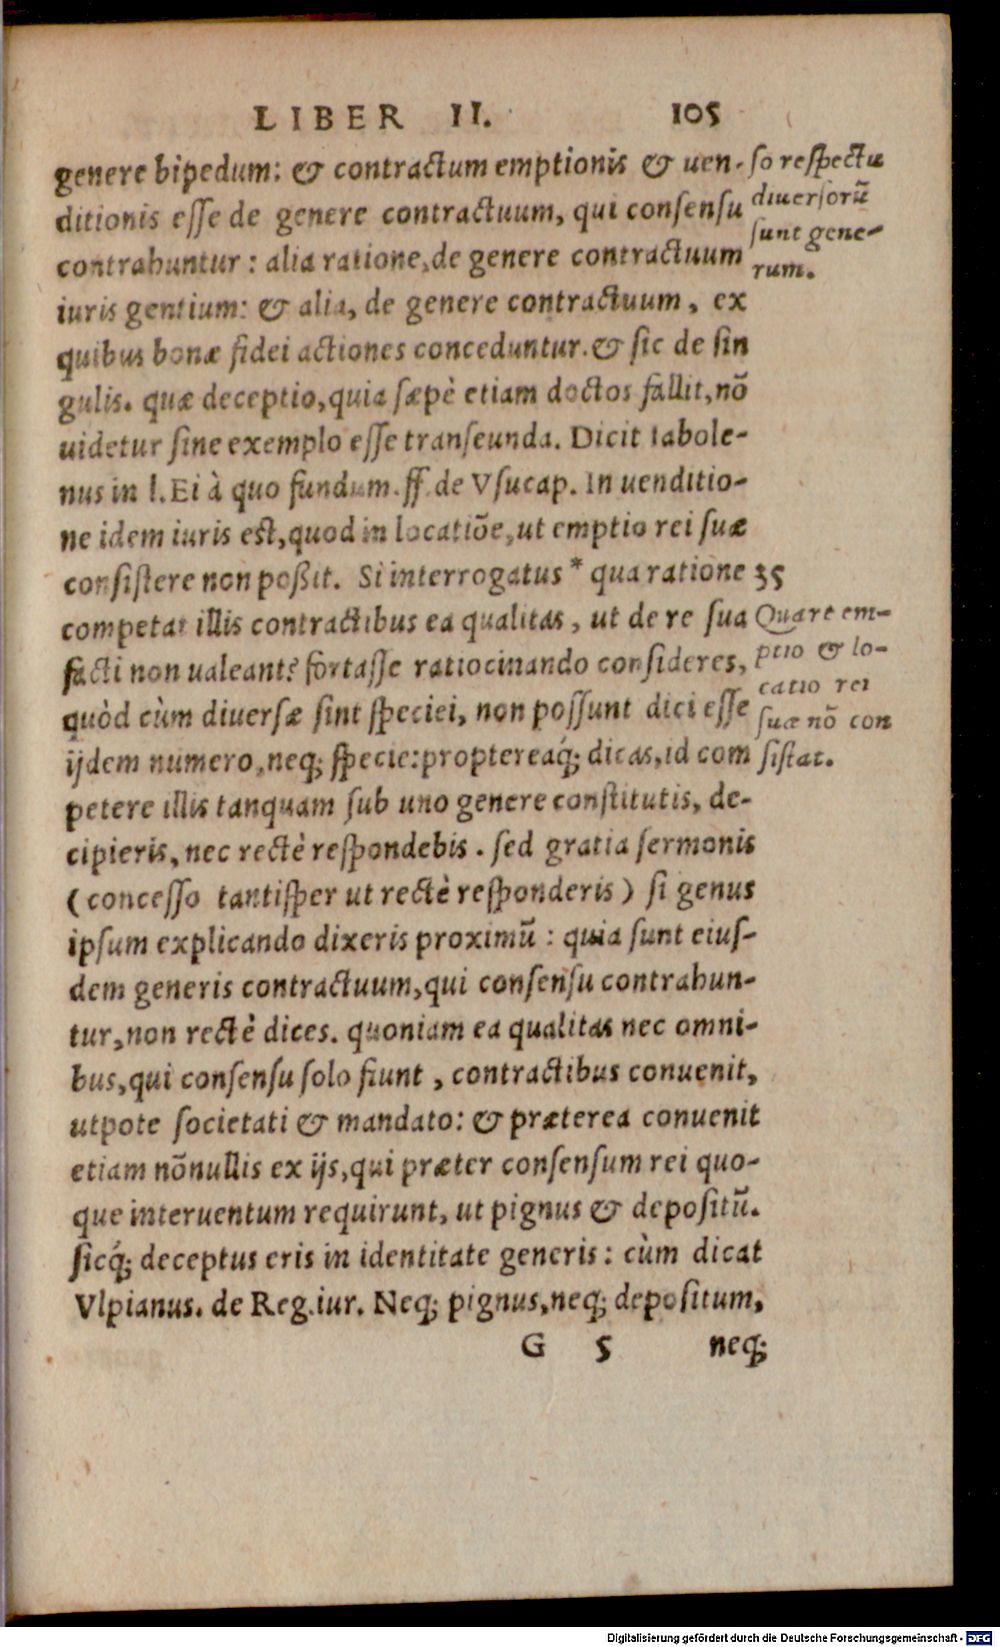 LIBER II. 105
genere bipedum: & contractum emptionis & uen-
ditionis esse de genere contractuum, qui consensu
contrahuntur: alia ratione, de genere contractuum
iuris gentium: & alia, de genere contractuum, ex
quibus bonæ fidei actiones conceduntur. & sic de sin
gulis. quæ deceptio, quia sæpè etiam doctos fallit, nō
uidetur sine exemplo esse transeunda. Dicit Iabole-
nus in l. Ei à quo fundum. ff. de Vsucap. In uenditio-
ne idem iuris est, quod in locatiōe, ut emptio rei suæ
consistere non poßit. Si interrogatus * qua ratione
competat illis contractibus ea qualitas, ut de re sua
facti non ualeant? fortasse ratiocinando consideres,
quòd cùm diuersæ sint speciei, non possunt dici esse
ijdem numero, neq; specie: proptereaq́; dicas, id com
petere illis tanquam sub uno genere constitutis, de-
cipieris, nec rectè respondebis. sed gratia sermonis
(concesso tantisper ut rectè responderis) si genus
ipsum explicando dixeris proximū: quia sunt eius-
dem generis contractuum, qui consensu contrahun-
tur, non rectè dices. quoniam ea qualitas nec omni-
bus, qui consensu solo fiunt, contractibus conuenit,
utpote societati & mandato: & præterea conuenit
etiam nōnullis ex ijs, qui præter consensum rei quo-
que interuentum requirunt, ut pignus & depositū.
sicq́; deceptus eris in identitate generis: cùm dicat
Vlpianus. de Reg. iur. Neq; pignus, neq; depositum,
G 5 neq;
so respectu
diuersorū
sunt gene-
rum.
35
Quare em-
ptio & lo-
catio rei
suæ nō con
sistat.
Digitalisierung gefördert durch die Deutsche Forschungsgemeinschaft - DFG